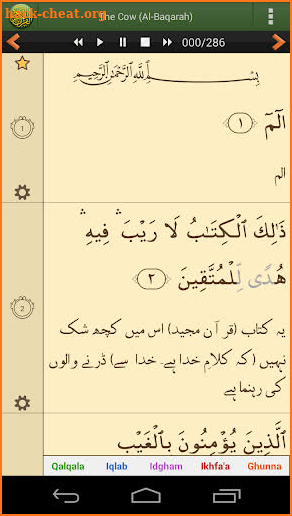 hack-cheat.org
The Cow (Al-Baqarah)
000/286
بِسْمِ ٱللَّهِ ٱلرَّحْمَٰنِ ٱلرَّحِيمِ
1
الٓمٓ ١
الم
ذَٰلِكَ الْكِتَابُ لَا رَيْبَ ۛ فِيهِ ۛ
هُدًى لِّلْمُتَّقِينَ ٢
2
یہ کتاب (قر آ ن مجید) اس میں کچھ شک
نہیں (کہ کلامِ خدا ہے۔ خدا سے) ڈرنے والوں
کی رہنما ہے
الَّذِينَ يُؤْمِنُونَ بِالْغَيْبِ
Qalqala Iqlab Idgham Ikhfa'a Ghunna